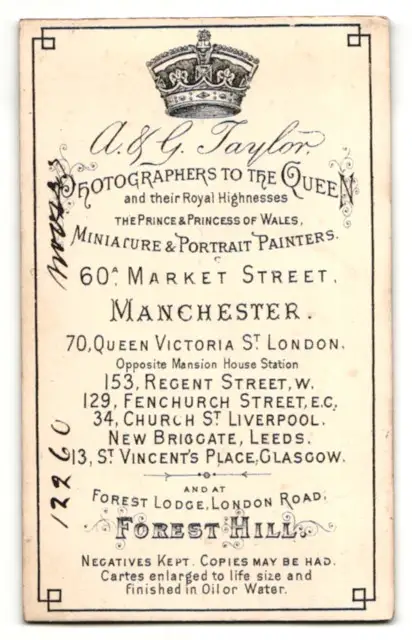 A. & G. Taylor.
PHOTOGRAPHERS TO THE QUEEN
and their Royal Highnesses
THE PRINCE & PRINCESS OF WALES,
MINIATURE & PORTRAIT PAINTERS.
60A. MARKET STREET,
MANCHESTER.
70, QUEEN VICTORIA ST. LONDON.
Opposite Mansion House Station
153, REGENT STREET, W.
129, FENCHURCH STREET, E.C.
34, CHURCH ST. LIVERPOOL.
NEW BRIGGATE, LEEDS.
13, ST. VINCENT'S PLACE, GLASGOW.
AND AT
FOREST LODGE, LONDON ROAD,
FOREST HILL.
NEGATIVES KEPT. COPIES MAY BE HAD.
Cartes enlarged to life size and
finished in Oil or Water.
12260